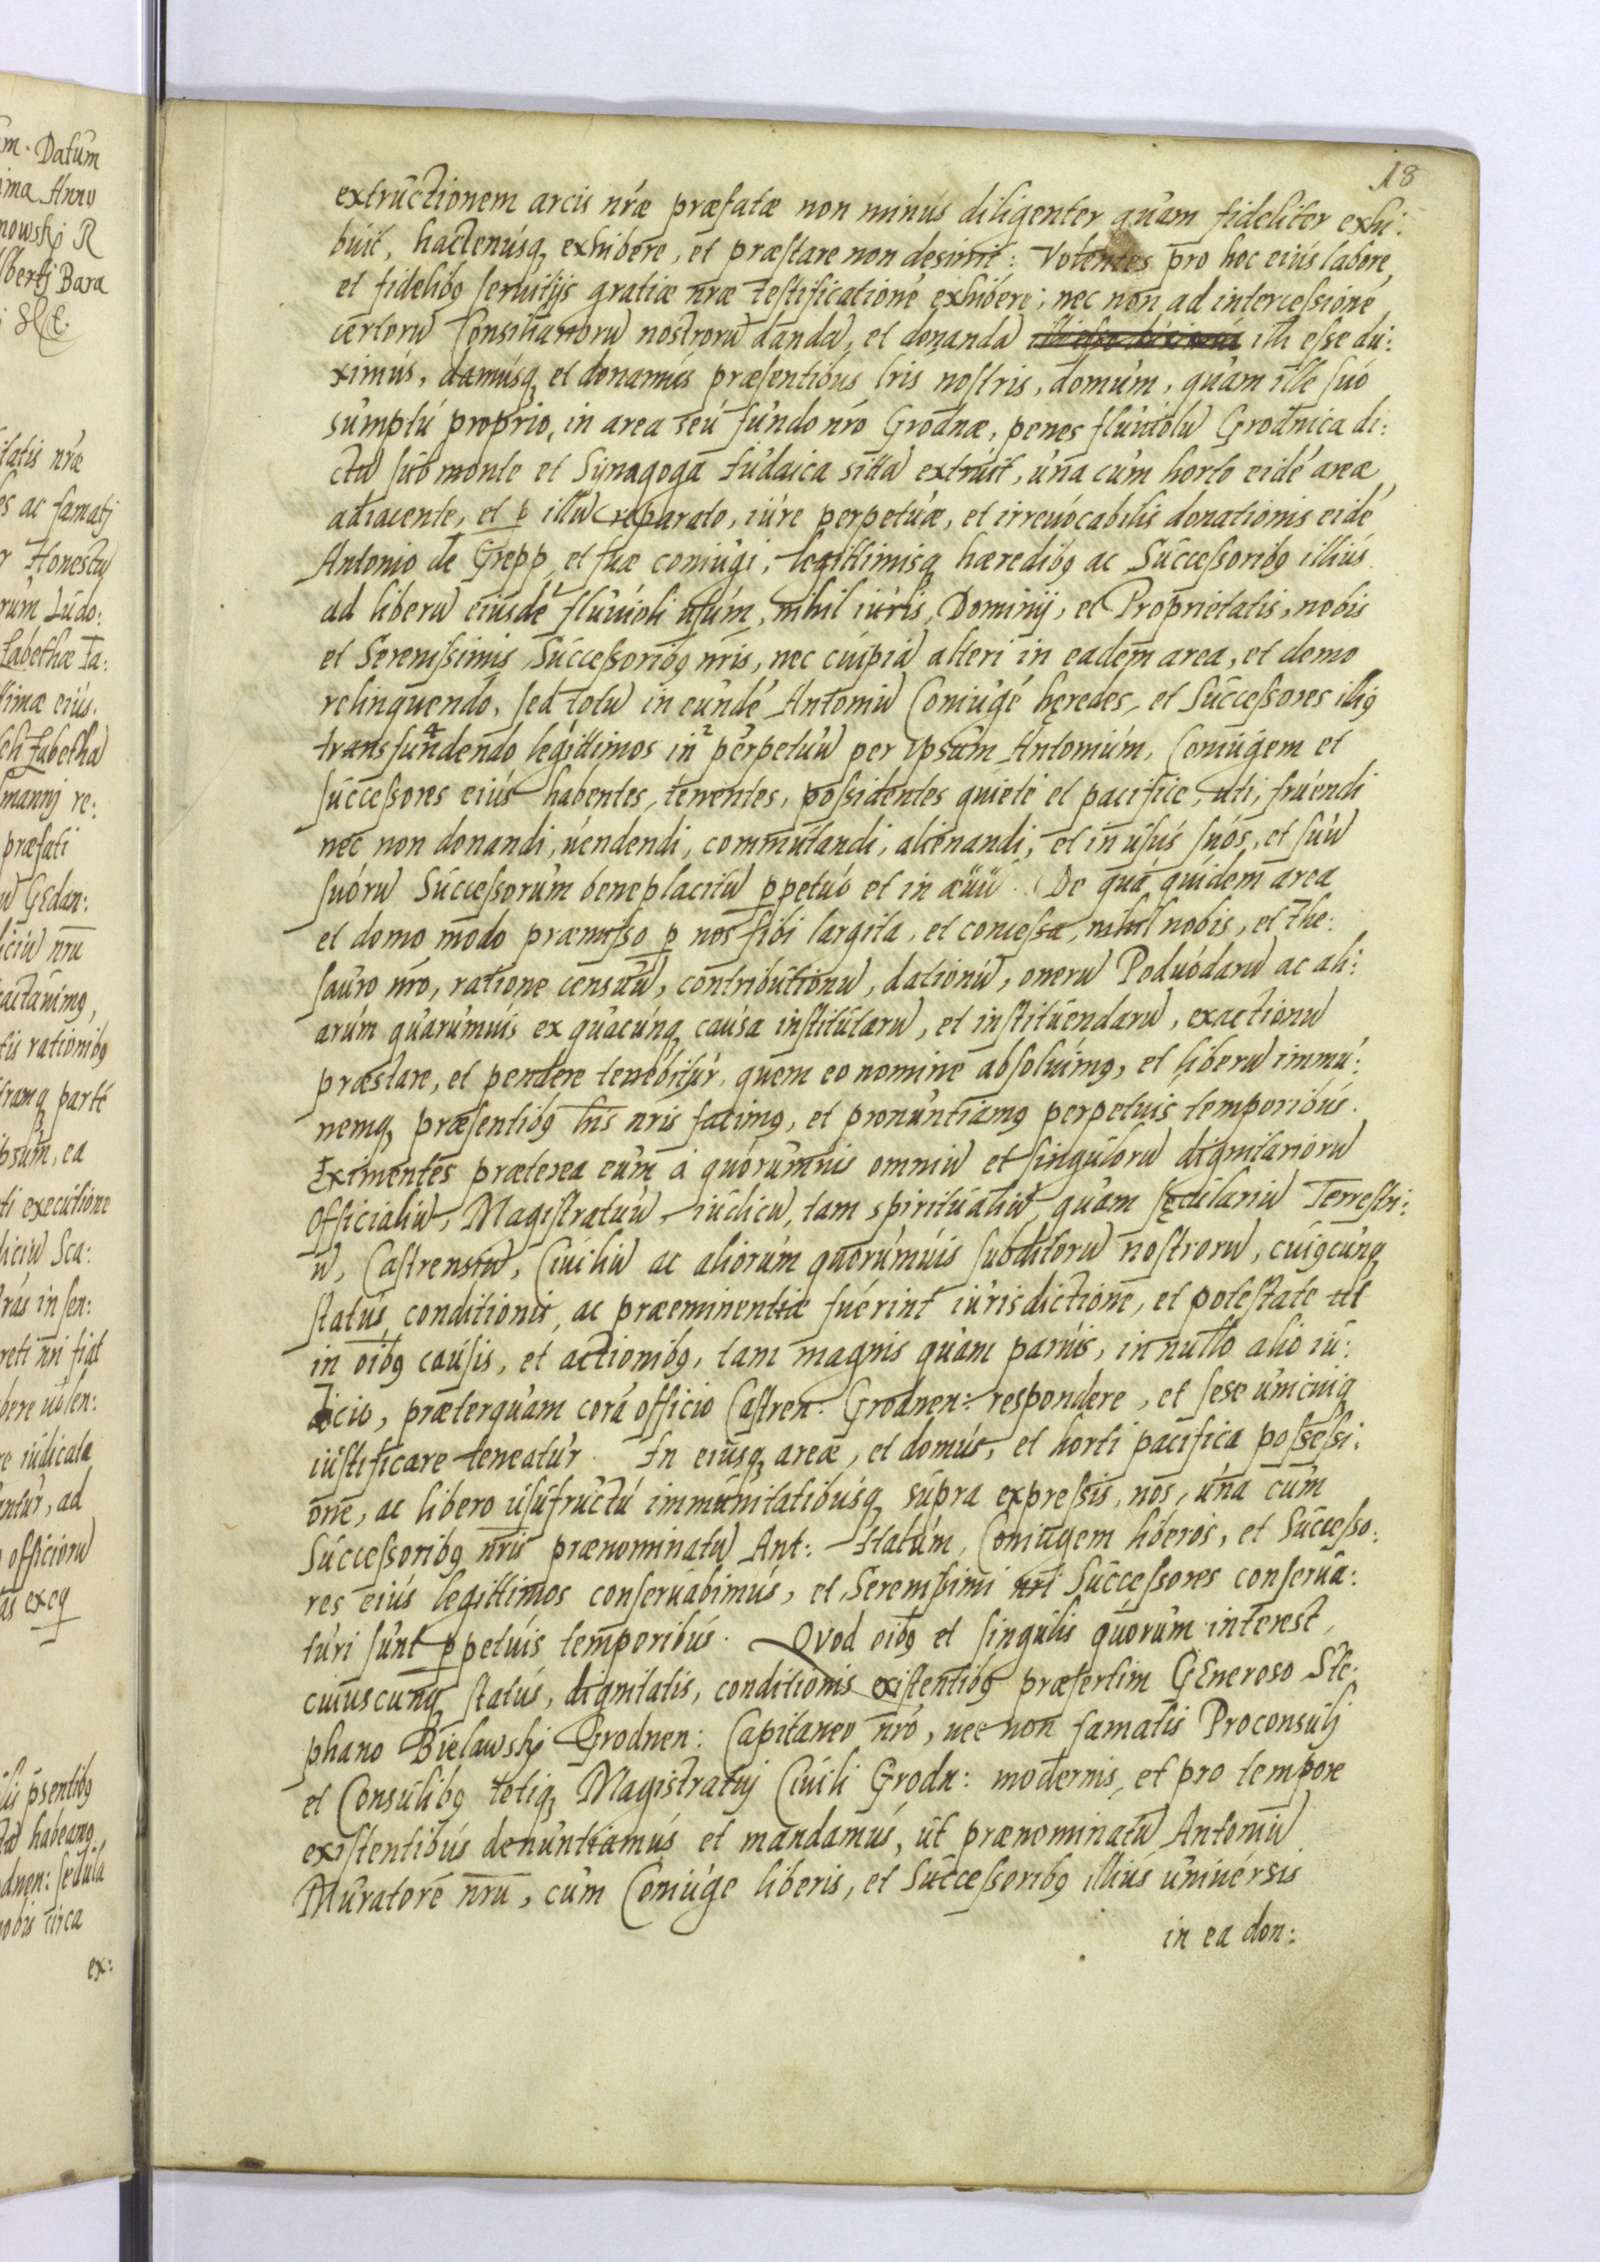 18
extructionem arcis nráe præfatæ non minús diligenter quam fideliter exhi:
buit, hactenúsq exhibere, et præstare non desinit: Volentes pro hoc eiús labore,
et fidelibq seruitijs gratiæ nræ testificationé exhibere; nec non ad intercessioné
certorũ Consiliariorũ nostrorũ dandã, et donandã illi esse du:
ximús, damúsq et donamús præsentibús lris nostris, domúm, quàm ille suó
súmptú proprio, in area seú fundo nró Grodnæ, penes fluuiolũ Grodnica di:
ctũ súb monte et Synagoga Iudaica sitã extruit, úna cúm horto eidé areæ
adiacente, et p illũ reparato, iúre perpetuæ, et irreuócabilis donationis eidé
Antonio de Grepp, et suæ coniúgi, legittimisq hæredibq ac Súccessoribq illiús
ad liberũ eiúsdé fluuioli usúm, nihil iúris, Dominij, et Proprietatis, nobis
et Serenissimis Súccessoribq nris, nec cúipiã alteri in eadem area, et domo
relinquendo, sed totũ in eúndé Antoniũ Coniúgé hęredes, et Súccessores illiq
transfundendo legittimos in perpetuũ per ipsúm Antoniúm, Coniúgem et
súccessores eiús habentes, tenentes, possidentes quieté et pacifice, uti, fruendi
nec non donandi, uendendi, commutandi, alienandi, et in usús súós, et súũ
súórũ Súccessorúm beneplacitũ ppetuó et in æũũ. De qua quidem area
et domo modo præmisso p nos sibi largita, et concessa, nihil nobis, et The:
sauro nró, ratione censuũ, contributionũ, dationũ, onerũ Poduódarũ ac ali:
arúm quarúmuis ex quacúnq caúsa institútarũ, et instituendarũ, exactionũ
præstare, et pendere tenebitúr, quem eo nomine absoluimq, et liberũ immú:
nemq præsentibq lris nris facimq, et pronúntiamq perpetuis temporibús.
Eximentes præterea eúm á quórúmuis omniũ et singulorũ dignitariorũ
Officialiũ, Magistratuũ, iudicũ, tam spiritúaliũ quam sęculariũ Terrestri:
ũ, Castrensiũ, Ciúiliũ ac aliorúm quorúmúis subditorũ nostrorũ, cuiqcúnq
statús, conditionis, ac præeminentiæ fuérint iúrisdictione, et potestate ut
in oibq caúsis, et actionibq, tam magnis quàm paruis, in nullo alio iú:
dicio, præterquam corá officio Castren: Grodnen: respondere, et sese unicuiq
iústificare teneatúr. In eiúsq areæ, et domús, et horti pacifica possessi:
one, ac libero úsúfructú immúnitatibúsq súpra expressis, nos, úna cúm
Súccessoribq nris prænominatũ Ant: Italúm, Coniúgem liberos, et Súccesso:
res eiús legittimos conseruabimús, et Serenissimi nri Súccessores conserua:
túri sunt ppetuis temporibús. Quod oibq et singulis quórúm interest,
cuiuscunq statús, dignitatis, conditionis existentibq præsertim Generoso Ste:
phano Bielawski Grodnen: Capitaneo nró, nec non famatis Proconsulj
et Consúlibq totiq Magistratuj Ciúili Grodn: modernis, et pro tempore
existentibús denúntiamús et mandamús, út prænominatũ Antoniũ
Múratoré nrũ, cúm Coniúge liberis, et Súccessoribq illiús úniuérsis
in ea don: